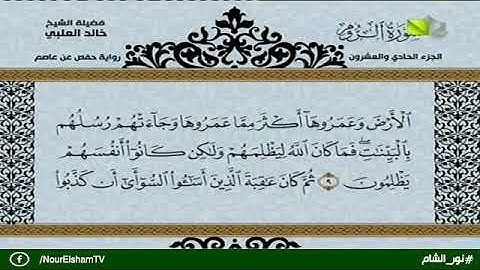 فضيلة الشيخ
خالد العلبي
سورة الروم
رواية حفص عن عاصم
الجزء الحادي والعشرون
ٱلۡأَرۡضَ وَعَمَرُوهَآ أَكۡثَرَ مِمَّا عَمَرُوهَا وَجَآءَتۡهُمۡ رُسُلُهُم
بِٱلۡبَيِّنَٰتِۖ فَمَا كَانَ ٱللَّهُ لِيَظۡلِمَهُمۡ وَلَٰكِن كَانُوٓاْ أَنفُسَهُمۡ
يَظۡلِمُونَ ٩ ثُمَّ كَانَ عَٰقِبَةَ ٱلَّذِينَ أَسَٰٓـُٔواْ ٱلسُّوٓأَىٰٓ أَن كَذَّبُواْ
f /NourElshamTV
#نور_الشام